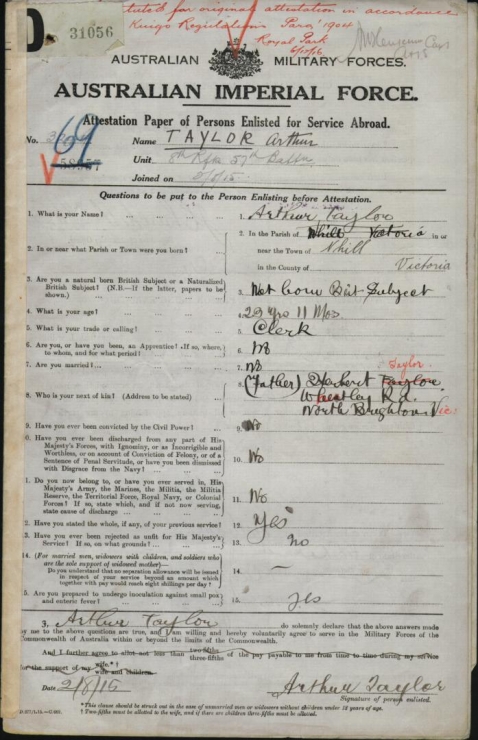 tuted for original attestation in accordance
Kings Regulations Para 1904
Royal Park
D
31056
AUSTRALIAN MILITARY FORCES.
AUSTRALIAN IMPERIAL FORCE.
Attestation Paper of Persons Enlisted for Service Abroad.
No. 69 Name TAYLOR Arthur
58957 Unit 57th Battn
Joined on
Questions to be put to the Person Enlisting before Attestation.
1. What is your Name? 1. Arthur Taylor
2. In or near what Parish or Town were you born? 2. In the Parish of Nhill Victoria in or
near the Town of Nhill
in the County of Victoria
3. Are you a natural born British Subject or a Naturalized
British Subject? (N.B.—If the latter, papers to be
shown.) 3. Nat born Brit Subject
4. What is your age? 4. 23 yrs 11 Mos
5. What is your trade or calling? 5. Clerk
6. Are you, or have you been, an Apprentice? If so, where,
to whom, and for what period? 6. No
7. Are you married? 7. No
8. Who is your next of kin? (Address to be stated) 8. (Father) Herbert Taylor Taylor
Wheatley Rd
North Brighton Vic:
9. Have you ever been convicted by the Civil Power? 9. No
0. Have you ever been discharged from any part of His
Majesty's Forces, with Ignominy, or as Incorrigible and
Worthless, or on account of Conviction of Felony, or of a
Sentence of Penal Servitude, or have you been dismissed
with Disgrace from the Navy? 10. No
1. Do you now belong to, or have you ever served in, His
Majesty's Army, the Marines, the Militia, the Militia
Reserve, the Territorial Force, Royal Navy, or Colonial
Forces? If so, state which, and if not now serving,
state cause of discharge 11. No
2. Have you stated the whole, if any, of your previous service? 12. Yes
3. Have you ever been rejected as unfit for His Majesty's
Service? If so, on what grounds? 13. no
14. (For married men, widowers with children, and soldiers who
are the sole support of widowed mother)—
Do you understand that no separation allowance will be issued
in respect of your service beyond an amount which
together with pay would reach eight shillings per day? 14. —
5. Are you prepared to undergo inoculation against small pox
and enteric fever? 15. yes
3, Arthur Taylor do solemnly declare that the above answers made
by me to the above questions are true, and I am willing and hereby voluntarily agree to serve in the Military Forces of the
Commonwealth of Australia within or beyond the limits of the Commonwealth.
And I further agree to allot not less than two-fifths three-fifths of the pay payable to me from time to time during my service
for the support of my wife.*† wife and children.
Date 2/8/15 Arthur Taylor
Signature of person enlisted.
*This clause should be struck out in the case of unmarried men or widowers without children under 18 years of age.
†Two-fifths must be allotted to the wife, and if there are children three-fifths must be allotted.